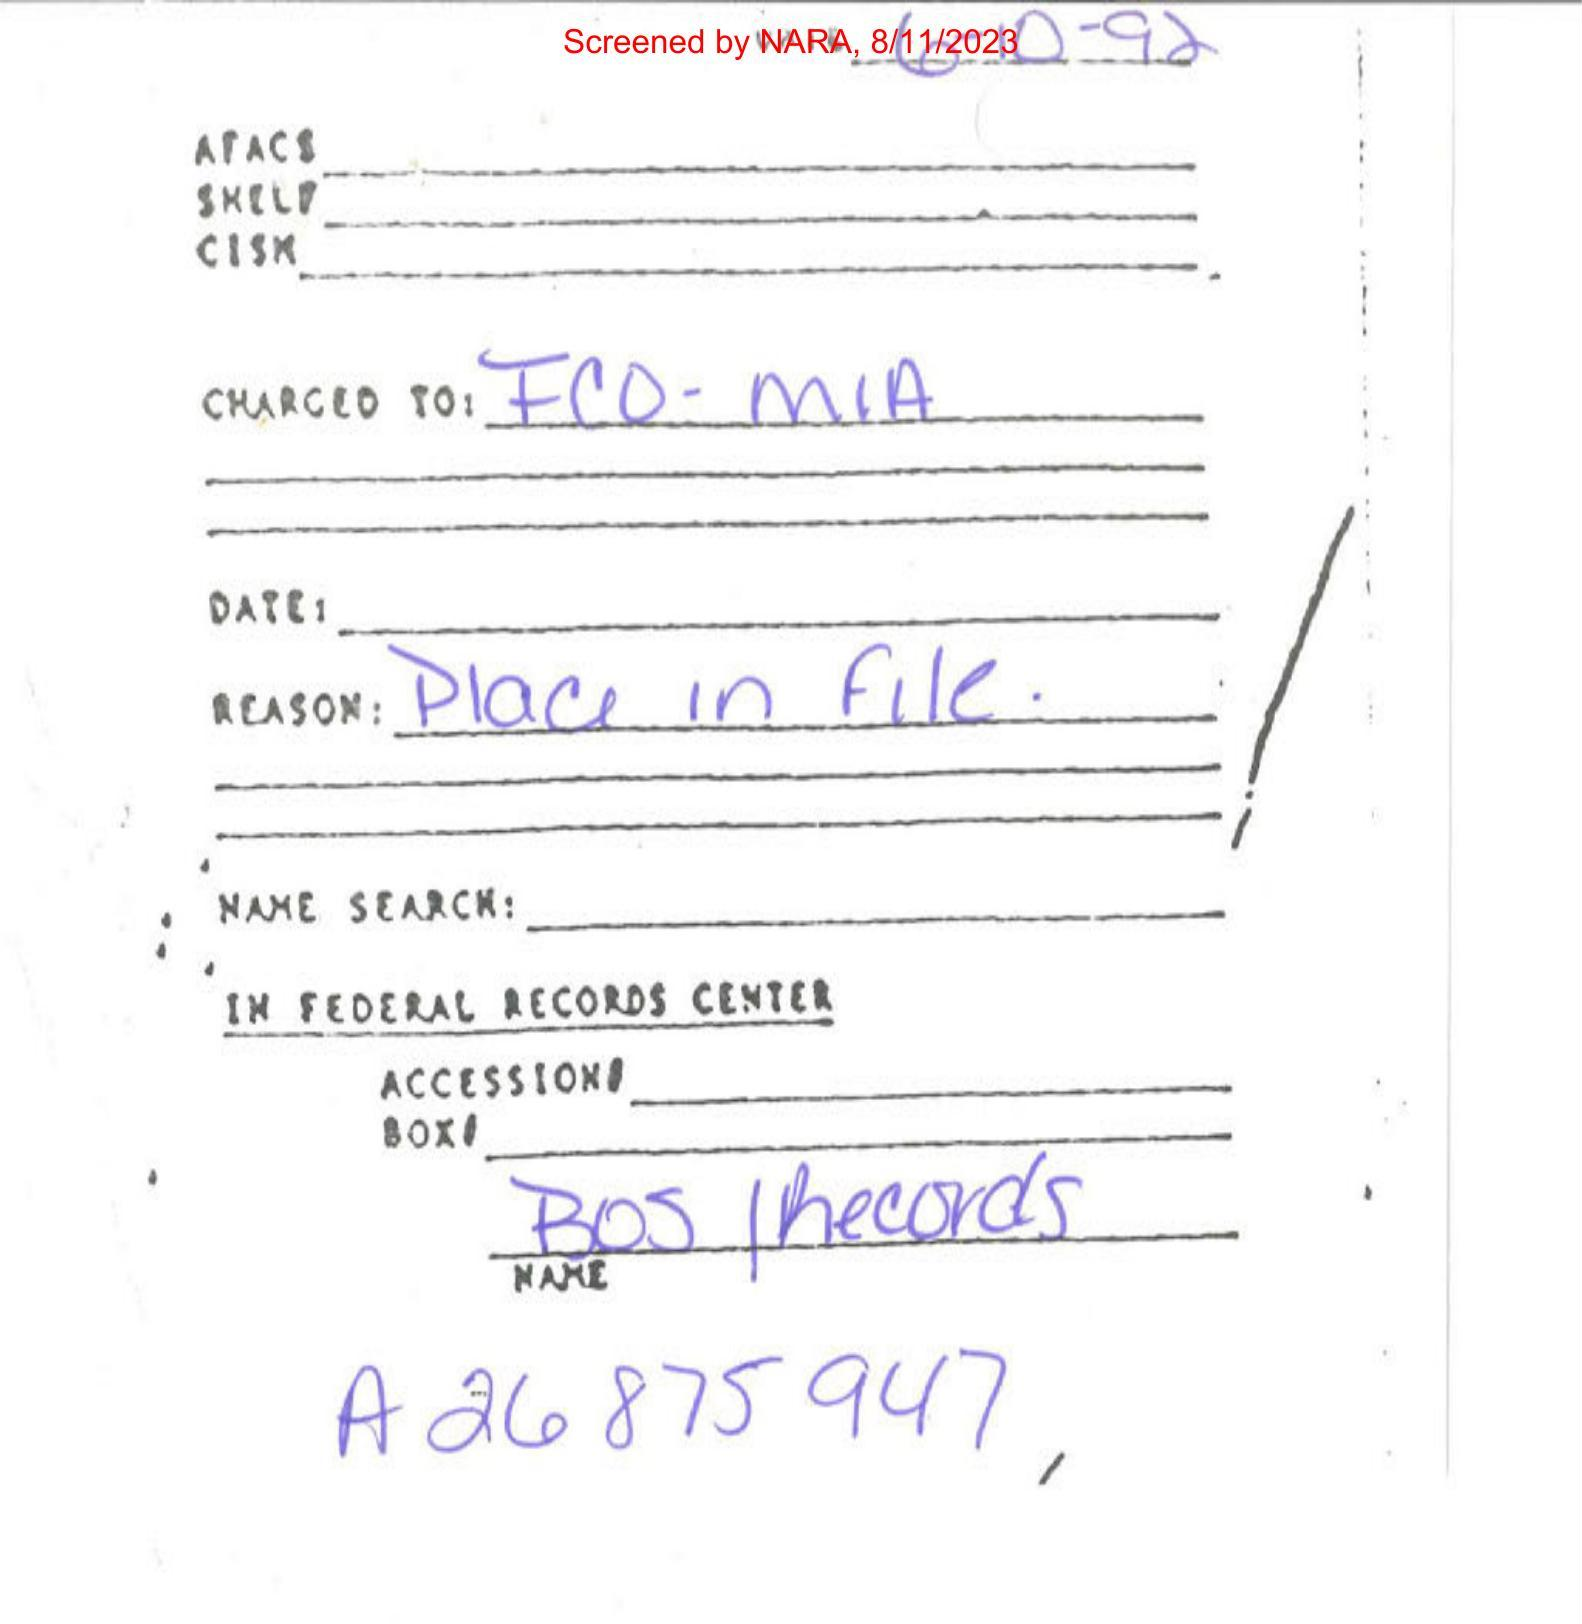 Screened by NARA, 8/11/2023
DATE 6-10-92
AFACS
SHELF
CISM
CHARGED TO: FCO- MIA
DATE:
REASON: Place in File.
NAME SEARCH:
IN FEDERAL RECORDS CENTER
ACCESSION#
BOX#
BOS / Records
NAME
A 26 875 947